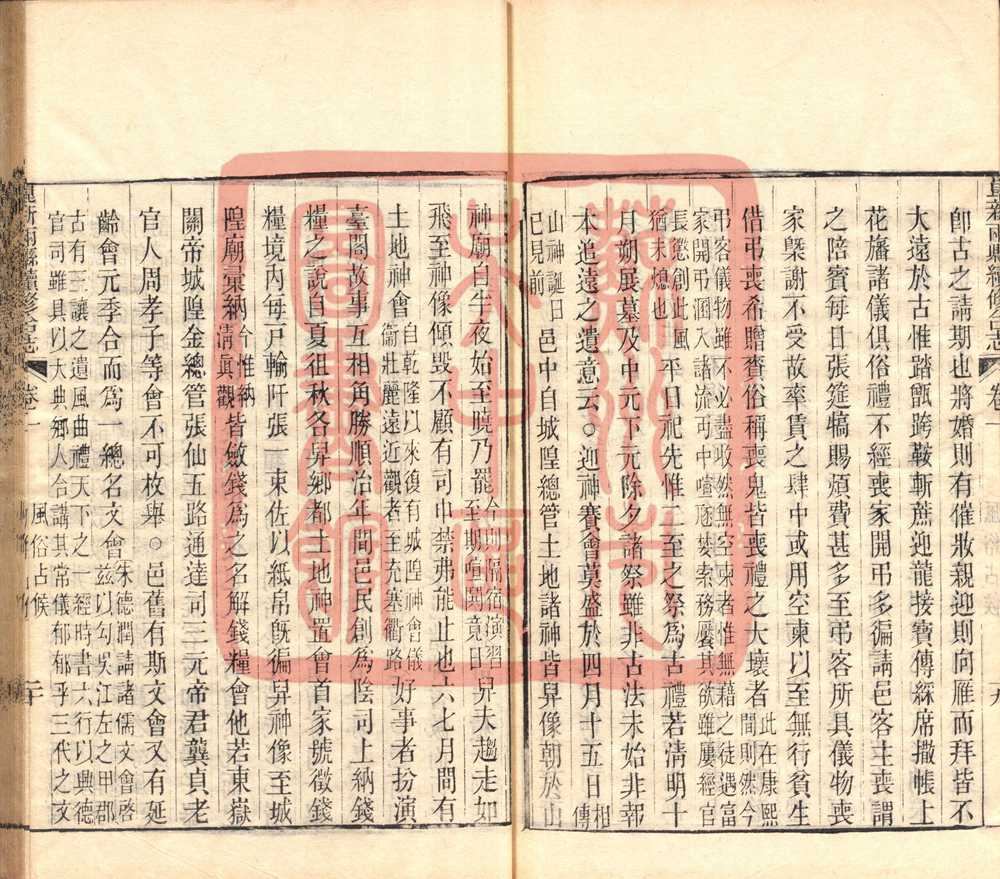 卽古之請期也將婚則有催妝親迎則向雁而拜皆不
大遠於古惟踏甑跨鞍斬蔗迎龍接寶傳綵席撒帳上
花旛諸儀俱俗禮不經喪家開弔多多徧請邑客主喪謂
之陪賓每日張筵犒賜煩費甚多至弔客所具儀物喪
家槩謝不受故率賃之肆中或用空柬以至無行貧生
借弔喪希贈賚俗稱喪鬼皆喪禮之大壞者此在康熙間則然今
弔客儀物雖不必盡收然無空柬者惟無藉之徒遇富
家開弔涵入諸流丐中喧逐婪索務饜其欲雖屢經官
長懲創此風猶未熄也平日祀先惟二至之祭爲古禮若清明十
月朔展墓及中元下元除夕諸祭雖非古法未始非報
本追遠之遺意云○迎神賽會莫盛於四月十五日相傳
山神誕日已見前邑中自城隍總管土地諸神皆舁像朝於山
神廟自午夜始至曉乃罷今則隔宿演習至期喧闐竟日舁夫趨走如
飛至神像傾毀不顧有司示禁弗能止也六七月間有
土地神會自乾隆以來復有城隍神會儀衞壯麗遠近觀者至充塞衢路好事者扮演
臺閣故事互相角勝順治年間邑民創爲陰司上納錢
糧之說自夏徂秋各舁鄉都土地神置會首家號徵錢
糧境內每戶輸阡張一束佐以紙帛旣徧舁神像至城
隍廟彙納今惟納清眞觀皆斂錢爲之名解錢糧會他若東嶽
關帝城隍金總管張仙五路通達司三元帝君龔貞老
官人周孝子等會不可枚舉○邑舊有斯文會又有延
齡會元季合而爲一總名文會朱德潤請諸儒文會啓茲以勾吳江左之甲郡
古有三讓之遺風曲禮天下之一經時書六行以興德
官司雖具以大典鄉人合講其常儀郁郁乎三代之文
崑新兩縣續修合志
卷一
風俗占候
二十